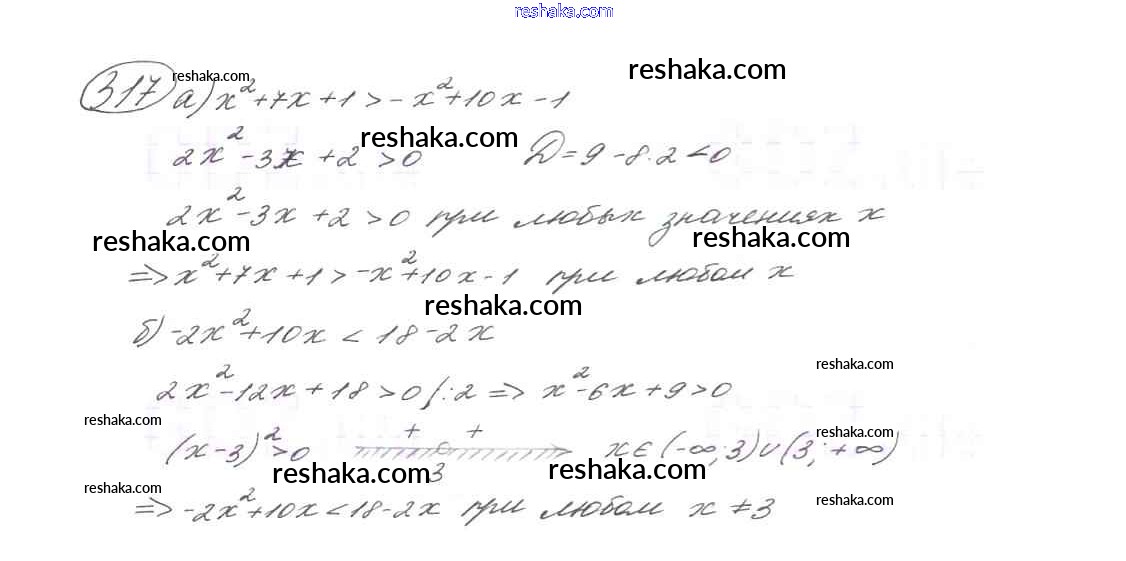 reshaka.com
317 а) x²+7x+1>-x²+10x-1
reshaka.com reshaka.com
2x²-3x+2>0 D=9-8·2<0
reshaka.com
2x²-3x+2>0 при любых значениях x
reshaka.com reshaka.com
=> x²+7x+1>-x²+10x-1 при любом x
reshaka.com
б) -2x²+10x<18-2x
reshaka.com
2x²-12x+18>0 /:2 => x²-6x+9>0
reshaka.com
reshaka.com
(x-3)²>0 + + 3 x∈(-∞;3)∪(3;+∞)
reshaka.com reshaka.com
reshaka.com reshaka.com
=> -2x²+10x<18-2x при любом x≠3